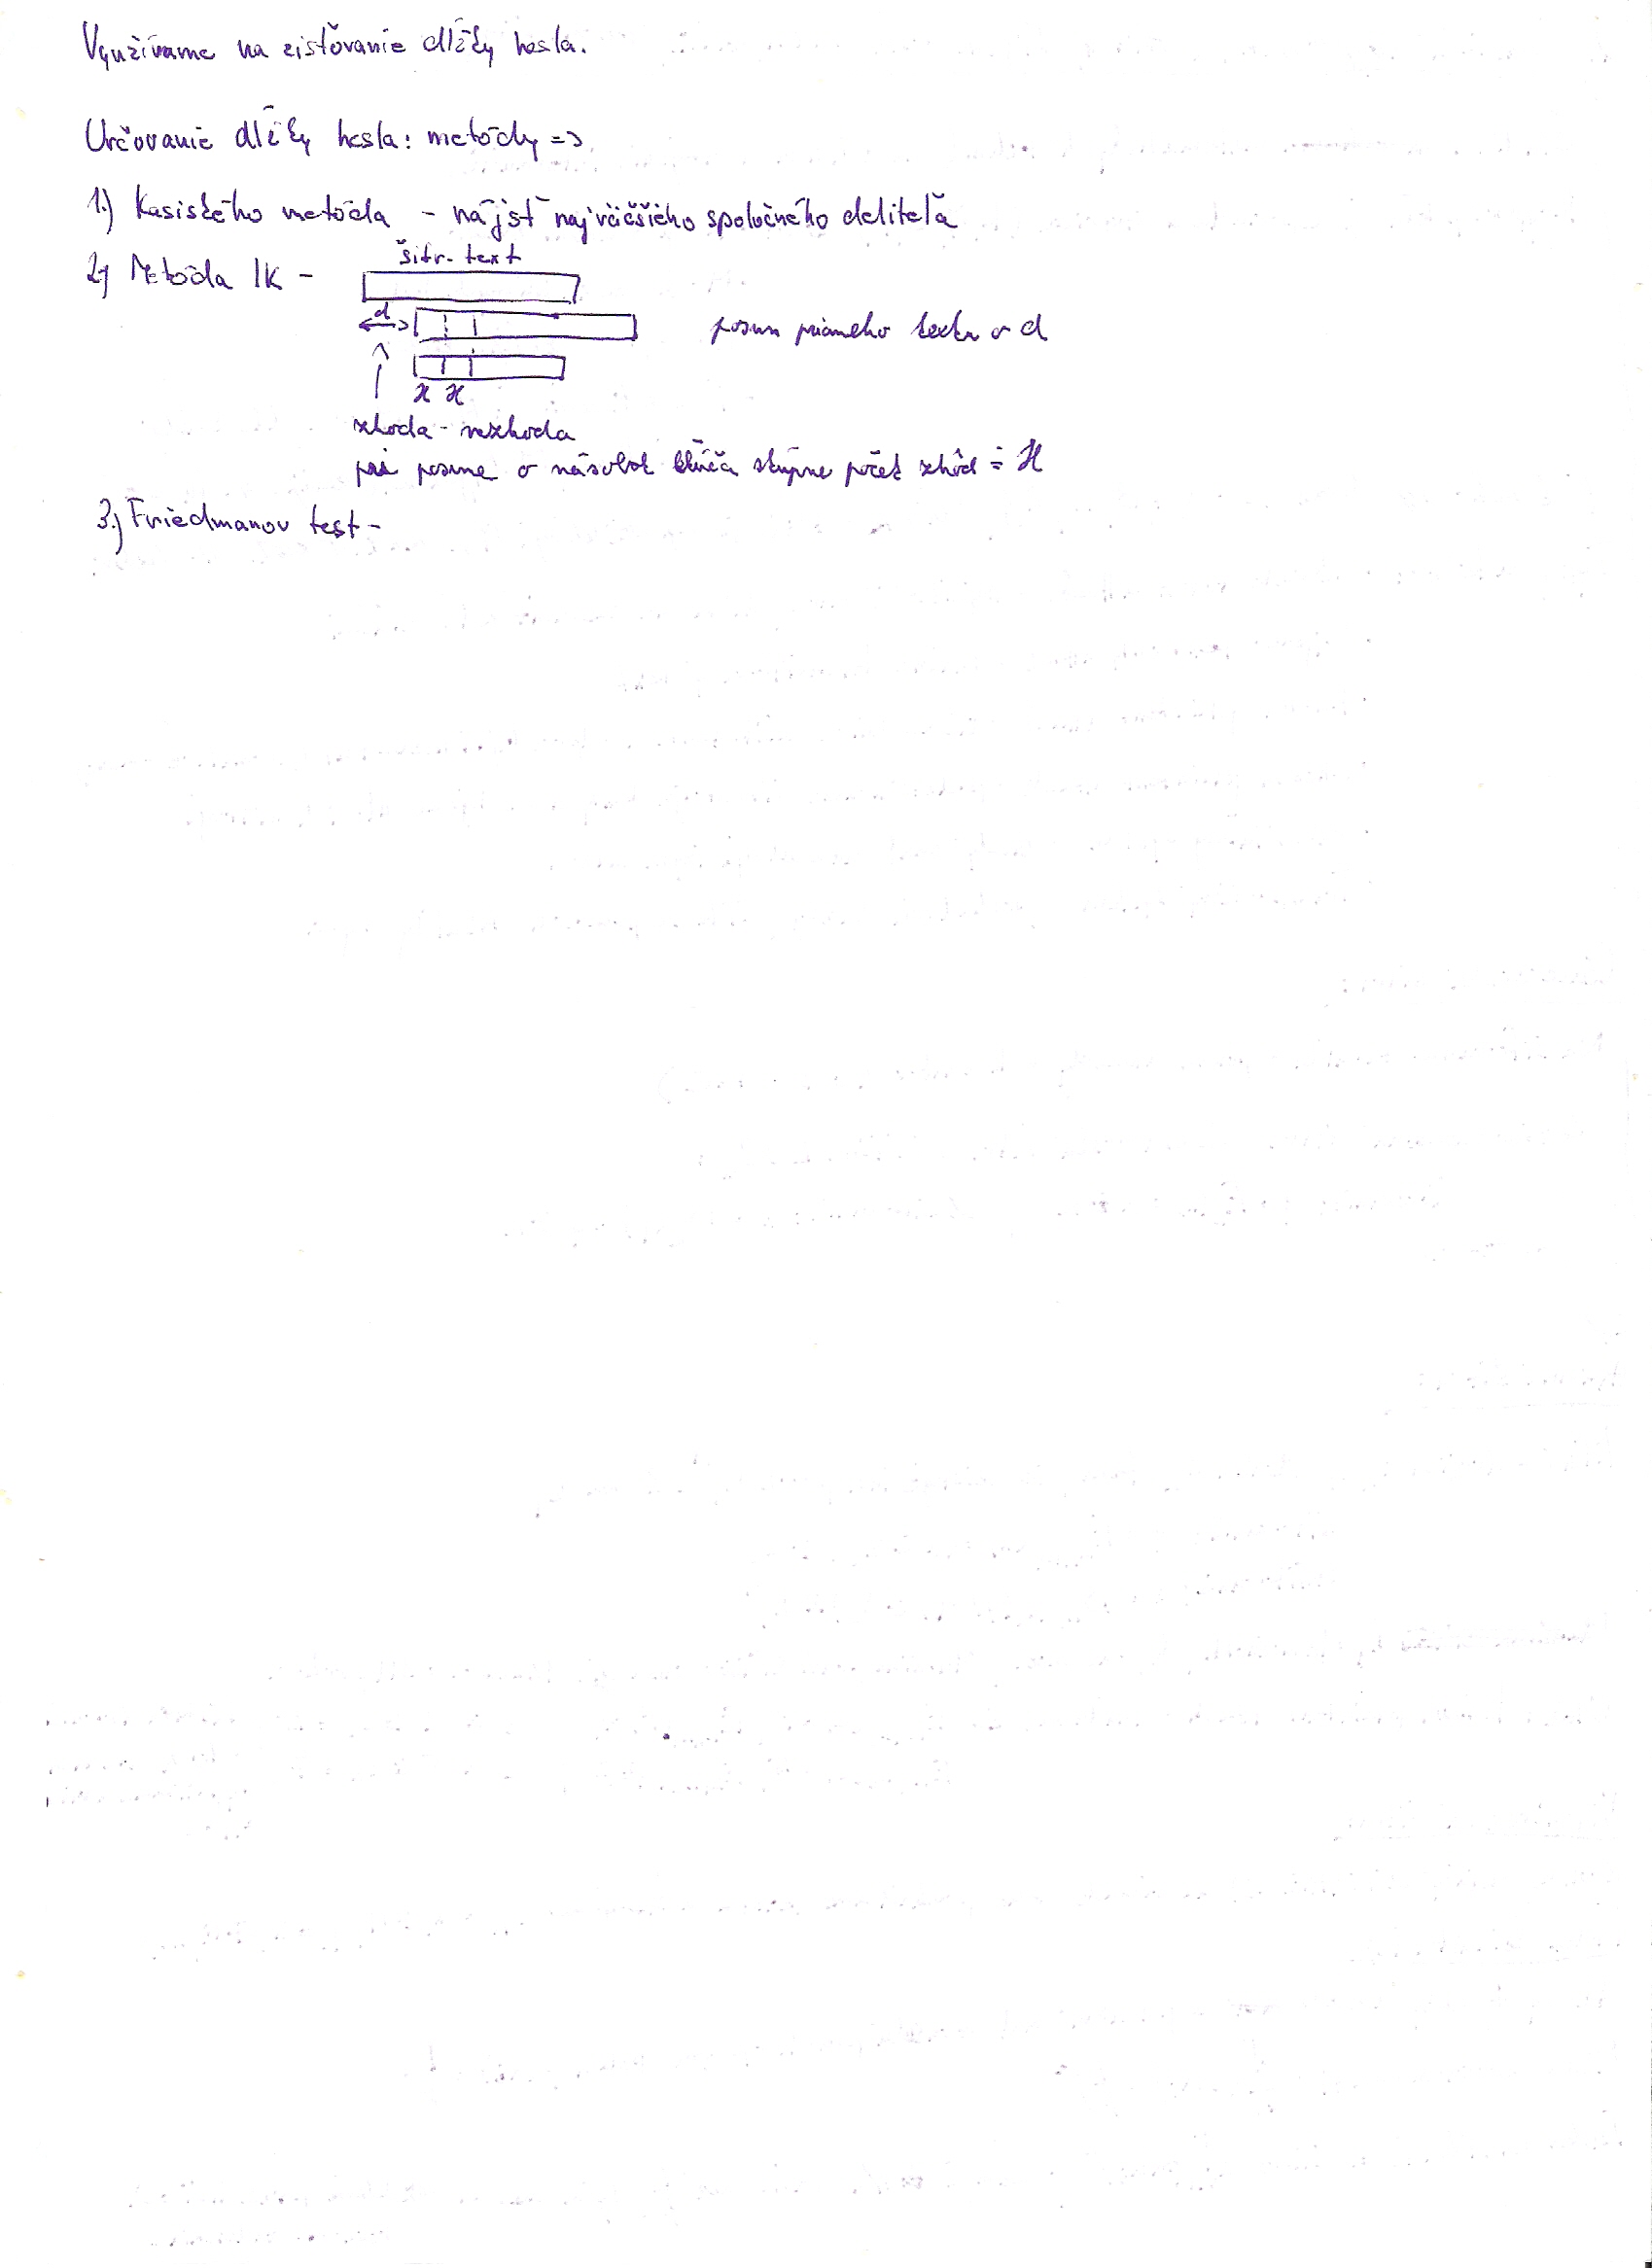 Využívame na zisťovanie dĺžky hesla.
Určovanie dĺžky hesla: metódy =>
1.) Kasiského metóda - nájsť najväčšieho spoločného deliteľa
2.) Metóda IK - šifr. text
d posun priameho textu o d
x x
zhoda - nezhoda
pri posune o násobok kľúča stúpne počet zhôd
3.) Friedmanov test -